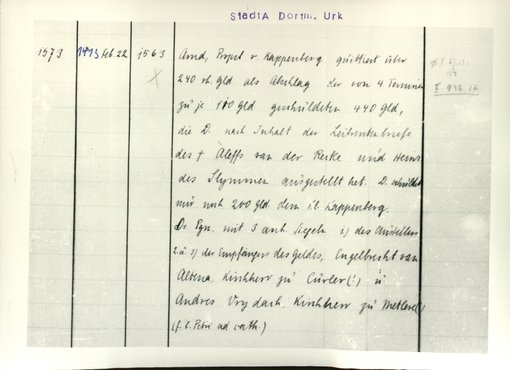 StadtA Dortm. Urk
1573 1473 Feb. 22 1563 Arnd, Propst v. Kappenberg quittiert über
240 rh. Gld als Abschlag der von 4 Terminen
zu je 110 Gld geschuldeten 440 Gld,
die D. nach Inhalt der Leibrentenbriefe
des † Aleffs van der Reke und Heinr.
des Slymmen ausgestellt hat. D. schuldet
nur noch 200 Gld dem Kappenberg.
Or. Pgn. mit 3 anh. Siegeln 1) des Ausstellers
2 u. 3) der Empfänger des Geldes, Engelbrecht van
Altena, Kirchherr zu Cürler(!) u
Andres Vrydach, Kirchherr zu Metler(!)
(f. b. Petri ad cath.)